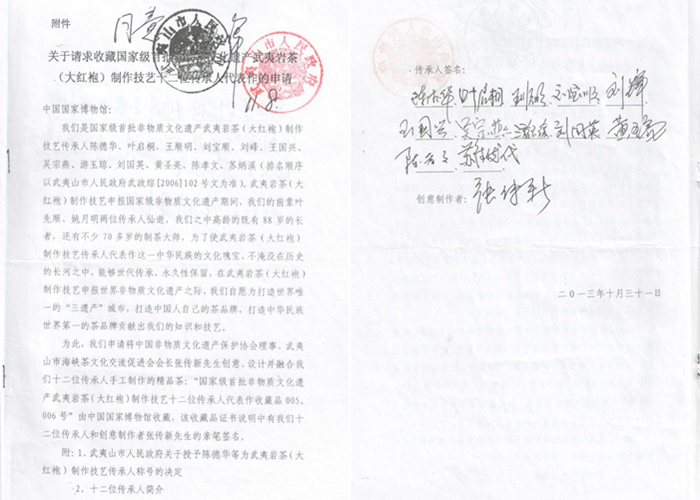 附件
同意
关于请求收藏国家级首批非物质文化遗产武夷岩茶
(大红袍)制作技艺十二位传承人代表作的申请
中国国家博物馆:
我们是国家级首批非物质文化遗产武夷岩茶(大红袍)制
作技艺传承人陈德华、叶启桐、王顺明、刘宝顺、刘峰、王国兴、
吴宗燕、游玉琼、刘国英、黄圣亮、陈孝文、苏炳溪(排名顺序
以武夷山市人民政府武政综[2006]102号文为准)。武夷岩茶(
大红袍)制作技艺申报国家级非物质文化遗产期间,我们的前辈叶
先顺、姚月明两位传承人仙逝,我们之中高龄的既有88岁的长
者,还有不少70多岁的制茶大师,为了使武夷岩茶(大红袍)
制作技艺传承人代表作这一中华民族的文化瑰宝,不淹没在历史
的长河之中,能够世代传承,永久性保留,在武夷岩茶(大红袍)
制作技艺申报世界非物质文化遗产之际,我们自愿为打造世界唯
一的“三遗产”城市,打造中国人自己的茶品牌,打造中华民族
世界第一的茶品牌贡献出我们的知识和技艺。
为此,我们申请将中国非物质文化遗产保护协会理事、武夷
山市海峡茶文化交流促进会会长张传新先生创意、设计并融合我
们十二位传承人手工制作的精品茶:“国家级首批非物质文化遗
产武夷岩茶(大红袍)制作技艺十二位传承人代表作收藏品005、
006号”由中国国家博物馆收藏,该收藏品证书说明中有我们十
二位传承人和创意制作者张传新先生的亲笔签名。
附:1、武夷山市人民政府关于授予陈德华等为武夷岩茶(
大红袍)制作技艺传承人称号的决定
2、十二位传承人简介
传承人签名:
陈德华 叶启桐 王顺明 刘宝顺 刘峰
王国兴 吴宗燕 游玉琼 刘国英 黄圣亮
陈孝文 苏炳溪代
创意制作者: 张传新
二〇一三年十月三十一日